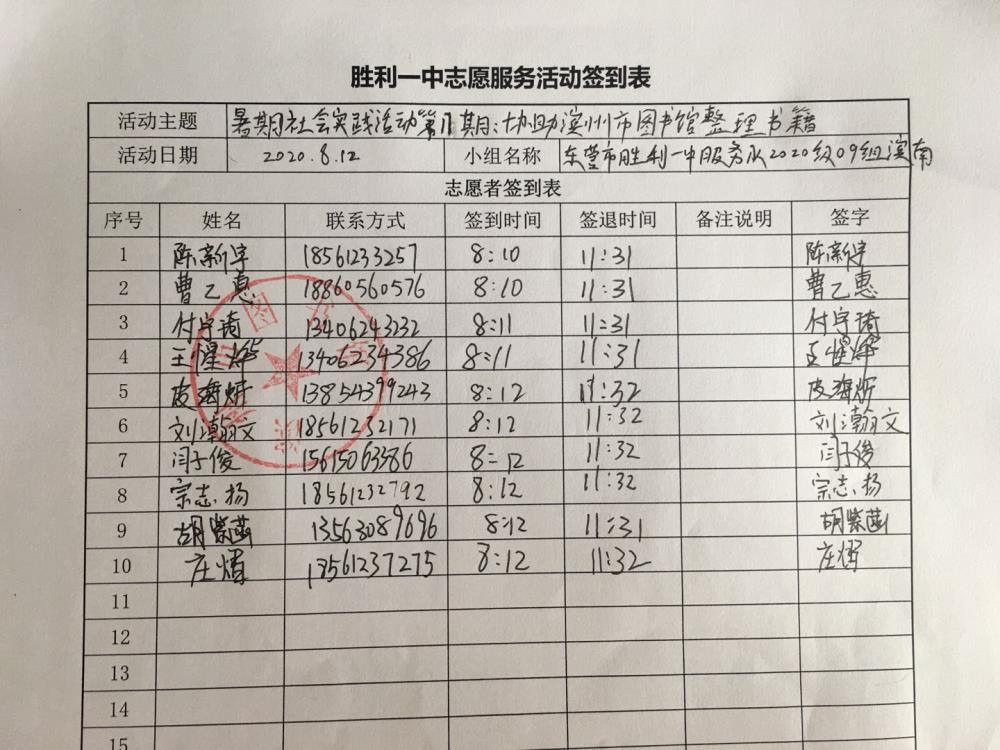 胜利一中志愿服务活动签到表
活动主题 暑期社会实践活动第 期:协助滨州市图书馆整理书籍
活动日期 2020.8.12 小组名称 东营市胜利一中服务队2020级09组滨南
志愿者签到表
序号 姓名 联系方式 签到时间 签退时间 备注说明 签字
1 陈新宇 18561233257 8:10 11:31 陈新宇
2 曹乙惠 18860560576 8:10 11:31 曹乙惠
3 付宇琦 13406243232 8:11 11:31 付宇琦
4 王惺烨 13406234386 8:11 11:31 王惺烨
5 皮海妍 13854399243 8:12 11:32 皮海妍
6 刘瀚文 18561232171 8:12 11:32 刘瀚文
7 闫子俊 15615063386 8:12 11:32 闫子俊
8 宗志扬 18561232792 8:12 11:32 宗志扬
9 胡紫菡 13563089696 8:12 11:31 胡紫菡
10 庄熠 18561237275 8:12 11:32 庄熠
11
12
13
14
15